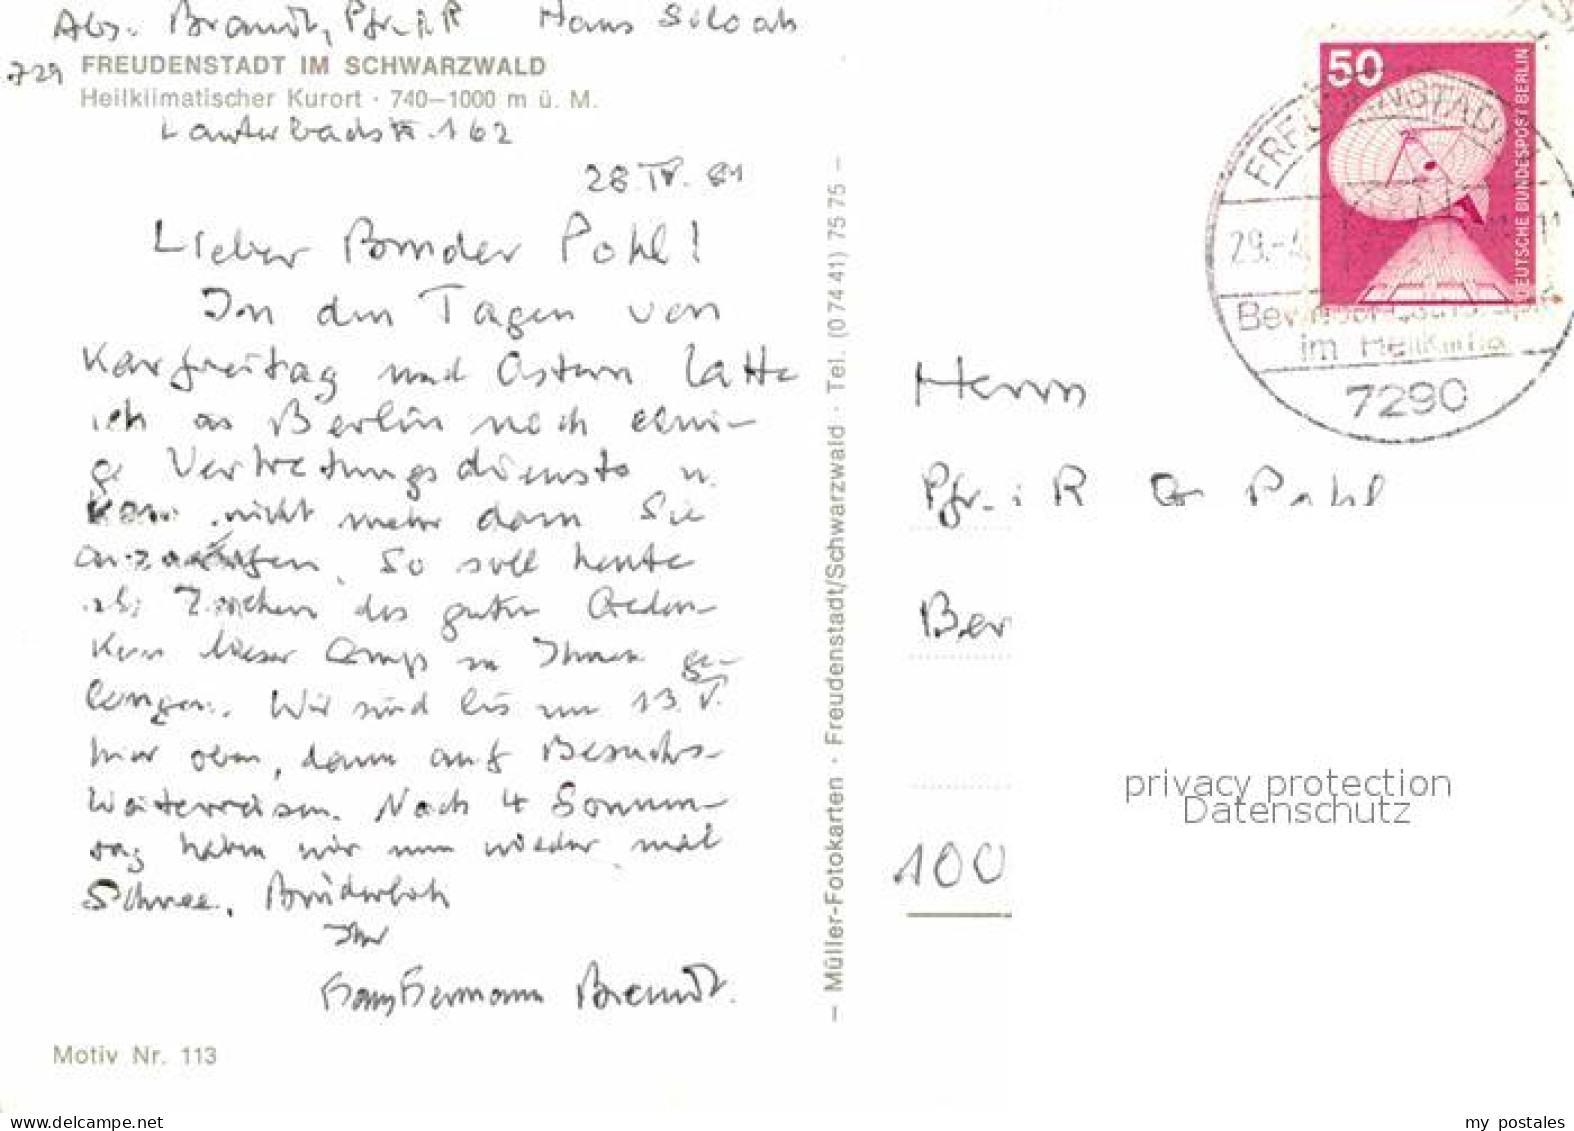 Abs. Brandt, Pfr. i. R Haus Siloah
729 FREUDENSTADT IM SCHWARZWALD
Heilklimatischer Kurort · 740–1000 m ü. M.
Lauterbadstr. 162
28. IV. 81
Lieber Bruder Pohl!
In den Tagen von
Karfreitag und Ostern hatte
ich in Berlin noch eini-
ge Vertretungsdienste u.
kam nicht mehr dazu Sie
anzurufen. So soll heute
als Zeichen des guten Geden-
kens dieser Gruß zu Ihnen ge-
langen. Wir sind bis zum 13. V.
hier oben, dann auf Besuchs-
Weiterreisen. Nach 4 Sommer-
tag haben wir nun wieder mal
Schnee. Brüderlich
Ihr
Hans Hermann Brandt.
Motiv Nr. 113
— Müller-Fotokarten · Freudenstadt/Schwarzwald · Tel. (0 74 41) 75 75 —
50
DEUTSCHE BUNDESPOST BERLIN
FREUDENSTADT
29.-4
im Heilklima
7290
Herrn
Pfr. i R Pohl
Ber
100
privacy protection
Datenschutz
www.delcampe.net
my_postales